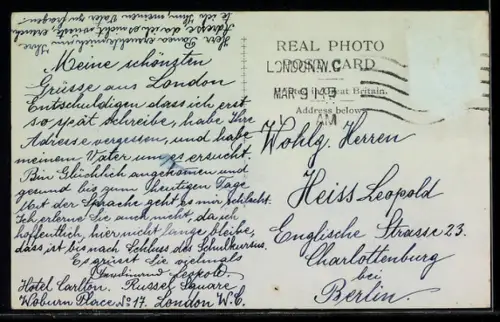 Meine schönsten
Grüsse aus London
Entschuldigen dass ich erst
so spät schreibe, habe Ihre
Adresse vergessen, und habe
meinem Vater um es ersucht.
Bin Glücklich angekomen und
gesund bis zum heutigen Tage
Mit der Sprache geht es mir schlecht.
Ich erlerne Sie auch nicht, da ich
hoffentlich, hier nicht lange bleibe,
dass ist bis nach Schluss des Schulkursus.
Es grüsst Sie vielmals
Ferdinand Leopold.
Hotel Carlton. Russel Square
Woburn Place, No 17. London W.C.
Herr
Ihre
Adresse da ich so nicht
te ich Ihm, meinen Vater zu fragen.
REAL PHOTO
POST CARD
LONDON. W.C
MAR 9
AM
Great Britain.
Address below
Wohlg. Herren
Heiss Leopold
Englische Strasse 23.
Charlottenburg
bei
Berlin.